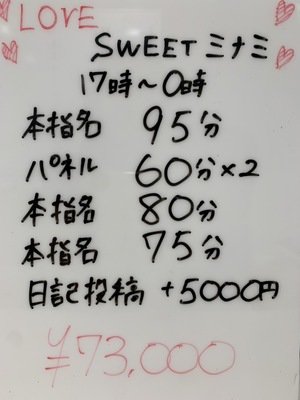 LOVE
SWEETミナミ
17時～0時
本指名 95分
パネル 60分×2
本指名 80分
本指名 75分
日記投稿 +5000円
¥73,000